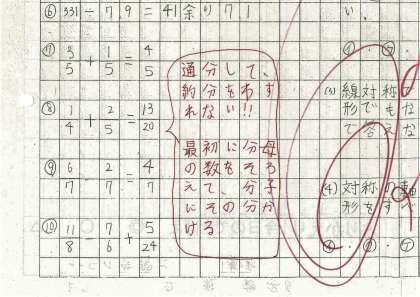 ⑥ 331 ÷ 7.9 = 41 余り 7.1
⑦ 3/5 + 1/5 = 4/5
⑧ 1/4 + 2/5 = 13/20
⑨ 6/7 - 2/7 = 4/7
⑩ 11/8 - 7/6 = 5/24
通分して、
約分をわす
れない!!
最初に分母
の数をそろ
えて、分子
にその分か
ける
い。
(3) 線対称
形でもな
で答えな
(4) 対称の軸
形をすべ